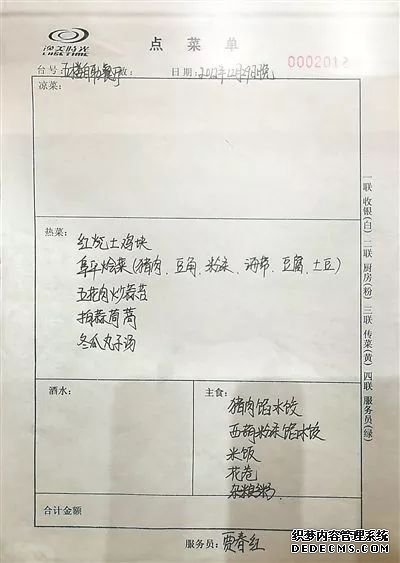 逸美时光
LUSETIME
点菜单
0002012
台号: 五楼自助餐厅 日期: 2012年12月29日晚
凉菜:
热菜:
红烧土鸡块
阜平烩菜(猪肉、豆角、粉条、海带、豆腐、土豆)
五花肉炒蒜苔
拍蒜茼蒿
冬瓜丸子汤
酒水:
主食:
猪肉馅水饺
西葫粉条馅水饺
米饭
花卷
杂粮粥
合计金额
服务员: 贾春红
一联 收银(白) 二联 厨房(粉) 三联 传菜(黄) 四联 服务员(绿)
织梦内容管理系统
DEDECMS.COM